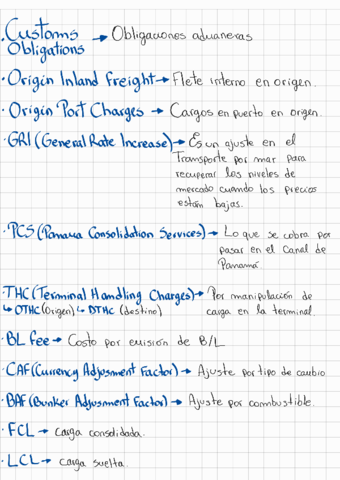 .Customs → Obligaciones aduaneras
Obligations
• Origin Inland Freight → Flete interno en origen.
• Origin Port Charges → Cargos en puerto en origen.
• GRI (General Rate Increase) → Es un ajuste en el
Transporte por mar para
recuperar los niveles de
mercado cuando los precios
estan bajas.
• PCS (Panama Consolidation Services) → Lo que se cobra por
pasar en el Canal de
Panamá.
• THC (Terminal Handling Charges) → Por manipulación de
↳ OTHC (Origen) ↳ DTHC (destino) carga en la terminal
• BL fee → Costo por emisión de B/L
• CAF (Currency Adjusment Factor) → Ajuste por tipo de cambio
• BAF (Bunker Adjusment Factor) → Ajuste por commbustible.
• FCL → carga consolidada.
• LCL → carga suelta.